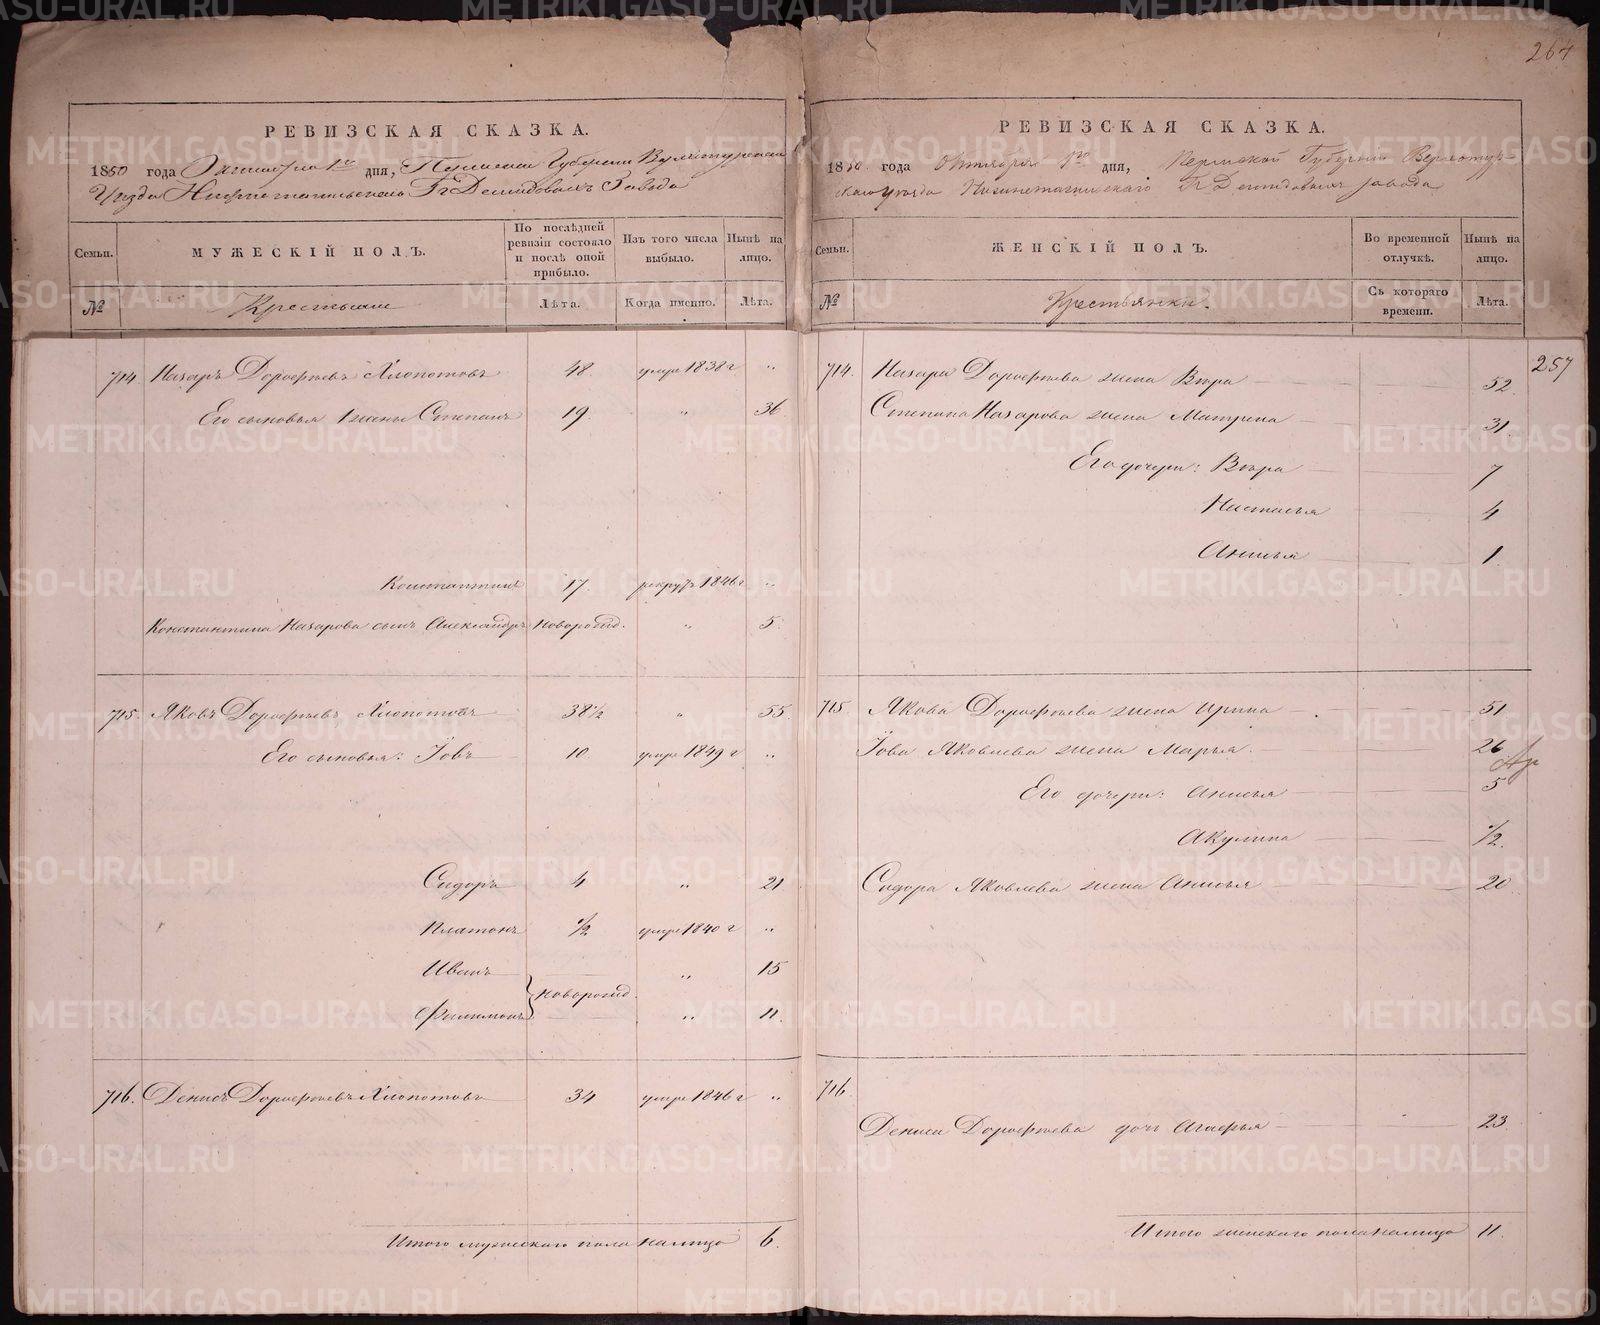 264
РЕВИЗСКАЯ СКАЗКА.
1850 года Октября 1го дня, Пермской Губернии Верхотурскаго
Уезда Нижнетагильскаго Гг Демидовыхъ Завода
Семьи.
МУЖЕСКІЙ ПОЛЪ.
По послѣдней ревизіи состояло и послѣ оной прибыло.
Изъ того числа выбыло.
Нынѣ на лицо.
№
Крестьяне
Лѣта.
Когда именно.
Лѣта.
714 Назаръ Дорофѣевъ Хлопотовъ 48. умре 1838 г „
Его сыновья 1 жены Степанъ 19. „ 36
Константинъ 17. рекрутъ 1846 г „
Константина Назарова сынъ Александръ новорожд. „ 5.
715. Яковъ Дорофѣевъ Хлопотовъ 38 1/2 „ 55.
Его сыновья: Іовъ 10. умре 1849 г „
Сидоръ 4 „ 21
Платонъ 1/2 умре 1840 г „
Иванъ „ 15
новорожд.
Филимонъ „ 11.
716. Денисъ Дорофѣевъ Хлопотовъ 34 умре 1846 г „
Итого мужескаго пола налицо 6.
РЕВИЗСКАЯ СКАЗКА.
1850 года Октября 1го дня, Пермской Губерніи Верхотур-
скаго уѣзда Нижнетагильскаго Гг Демидовыхъ завода
Семьи.
ЖЕНСКІЙ ПОЛЪ.
Во временной отлучкѣ.
Нынѣ на лицо.
№
Крестьянки.
Съ котораго времени.
Лѣта.
257
714. Назара Дорофѣева жена Вѣра 52.
Степана Назарова жена Матрена 31
Его дочери: Вѣра 7
Настасья 4
Анисья 1.
715. Якова Дорофѣева жена Ирина 51
Іова Яковлева жена Марья. 26
Его дочери: Анисья 5
Акулина 1/2.
Сидора Яковлева жена Анисья 20.
716.
Дениса Дорофѣева дочь Агафья 23.
Итого женскаго пола налицо 11.
METRIKI.GASO-URAL.RU